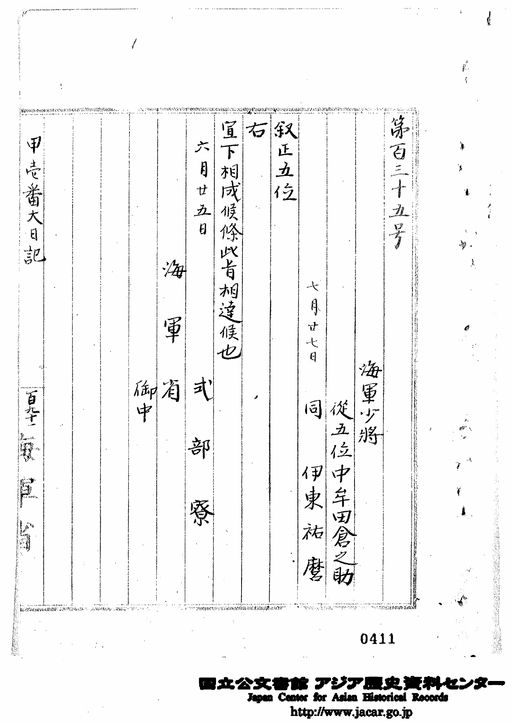 第百三十五号
海軍少将
従五位中牟田倉之助
七月廿七日
同 伊東祐麿
叙正五位
右
宣下相成候條此旨相達候也
六月廿五日 式部寮
海軍省
御中
甲壱番大日記
海軍省
0411
国立公文書館 アジア歴史資料センター
Japan Center for Asian Historical Records
http://www.jacar.go.jp